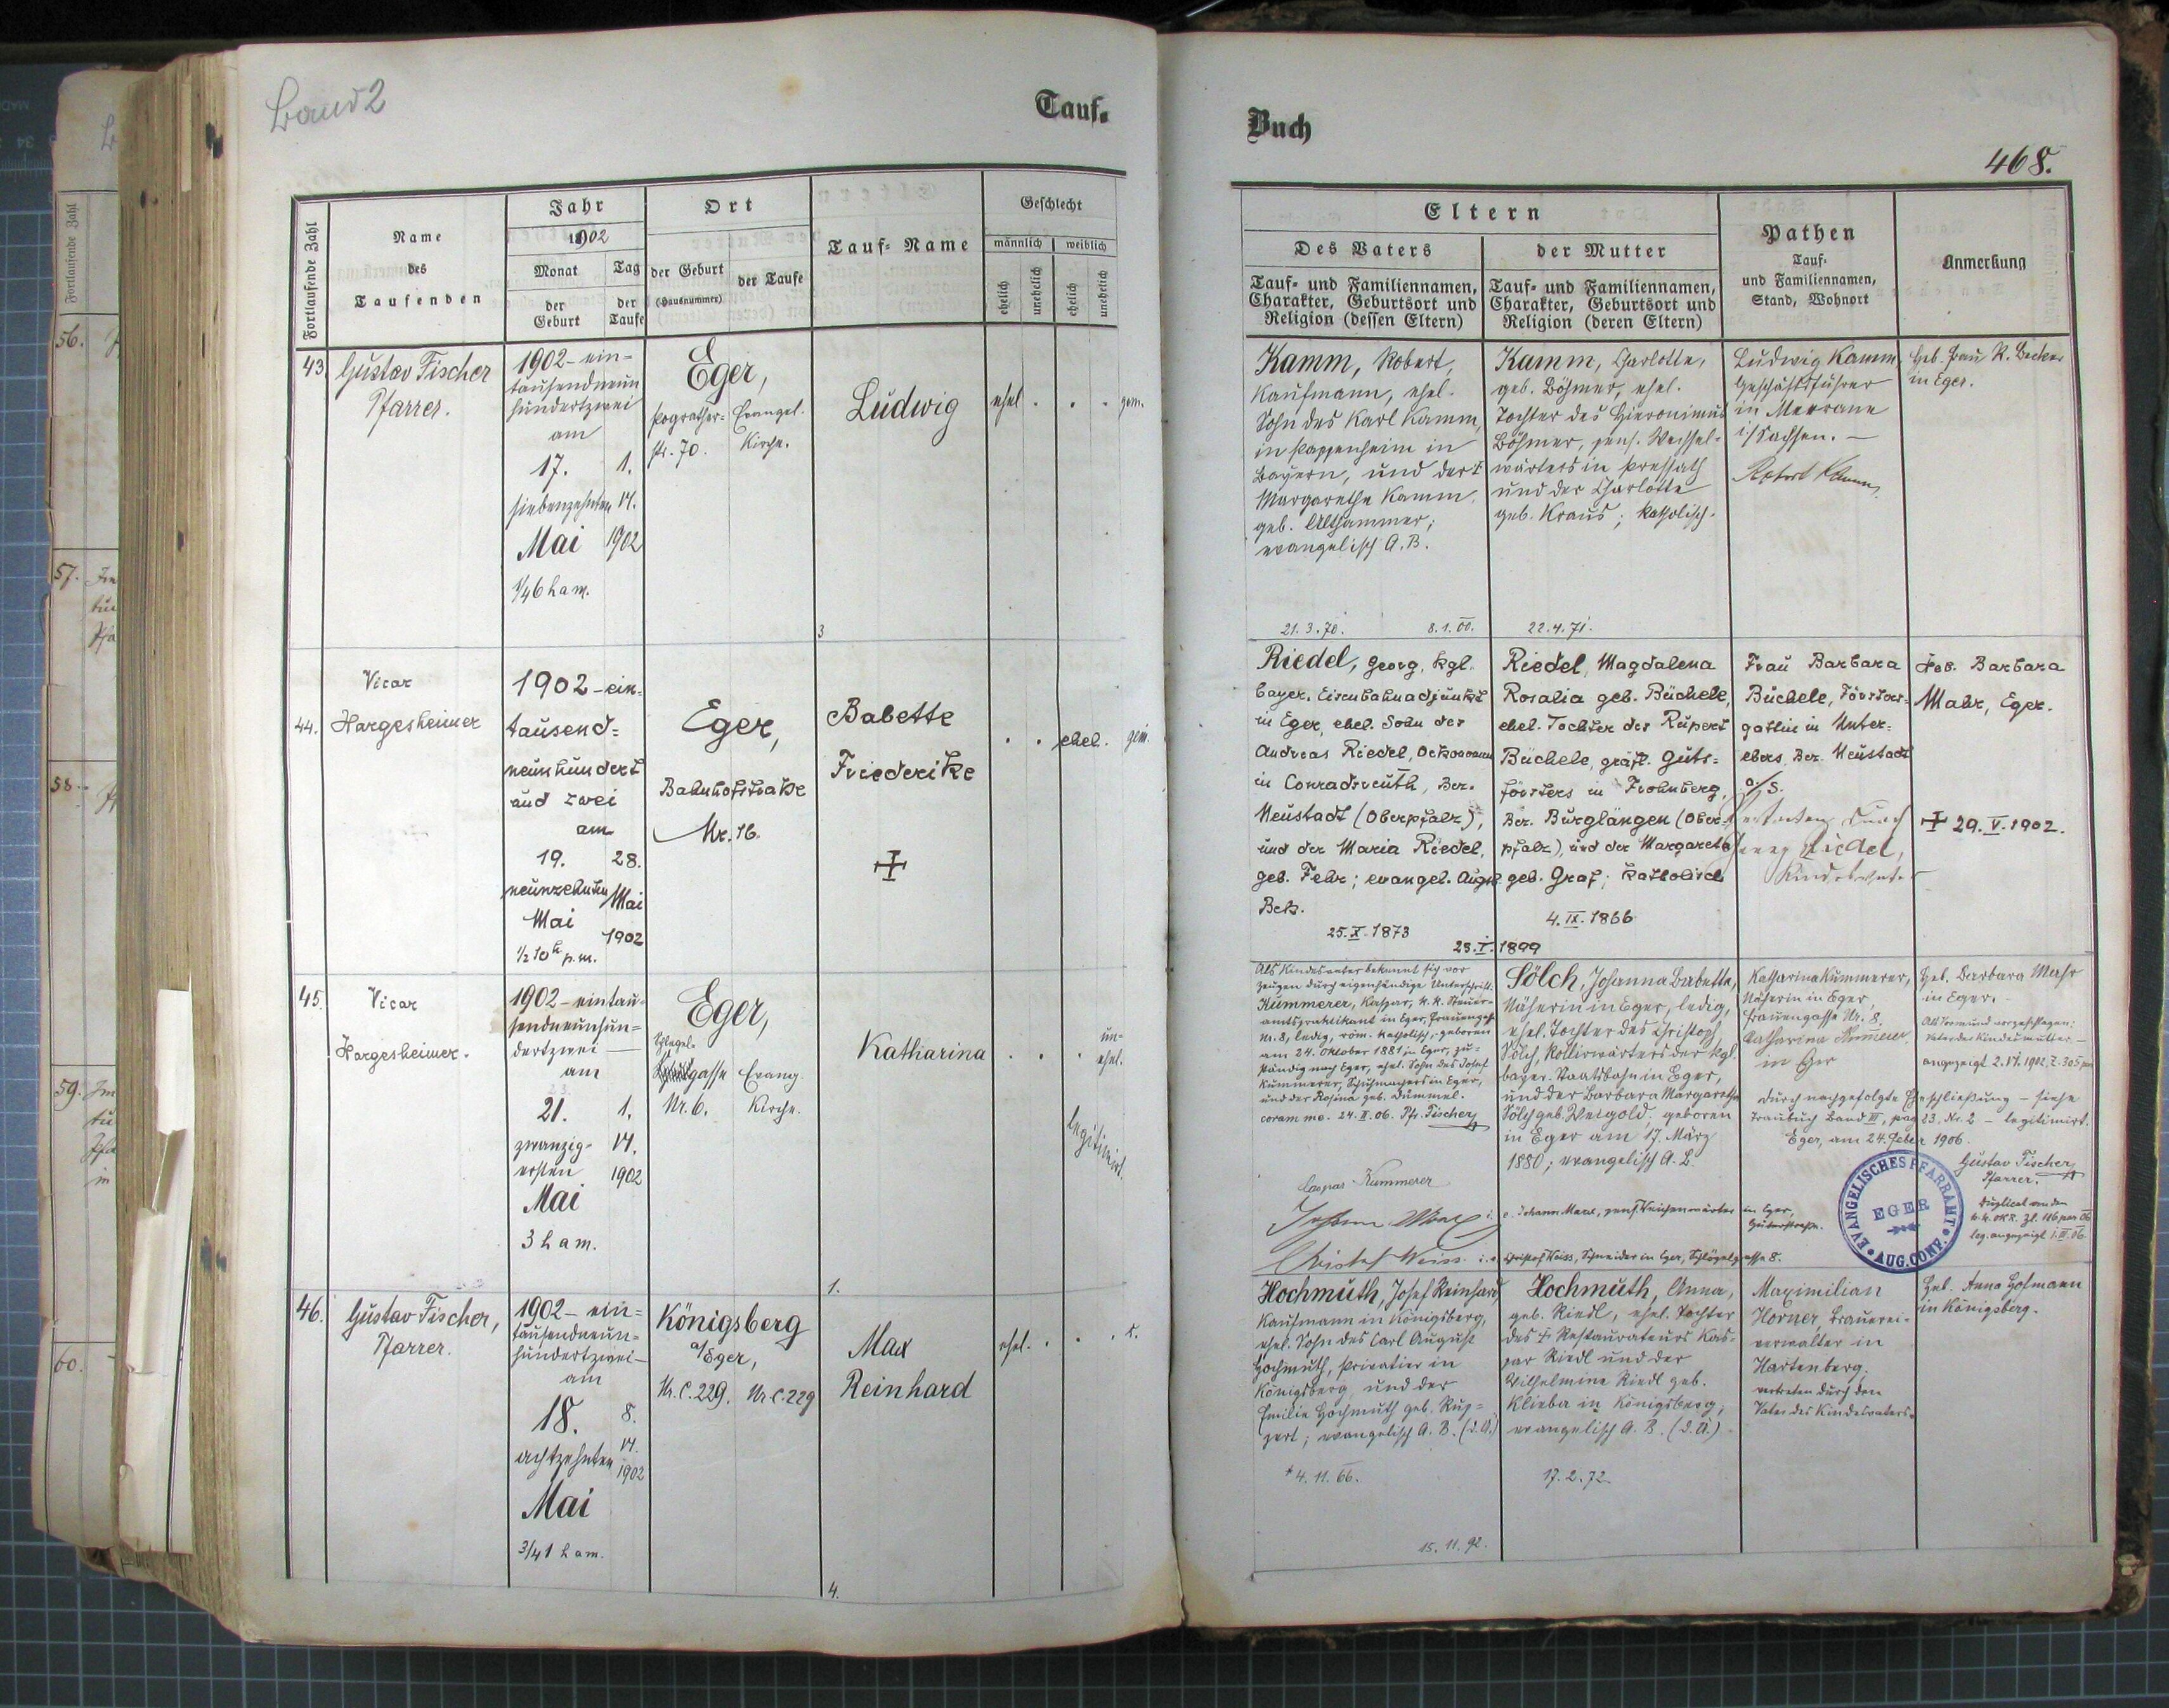 Band 2
Tauf-
Fortlaufende Zahl
Name
des
Taufenden
Jahr
1902
Monat
der
Geburt
Tag
der
Taufe
Ort
der Geburt
(Hausnummer)
der Taufe
Tauf-Name
Geschlecht
männlich
weiblich
ehelich
unehelich
ehelich
unehelich
43.
Gustav Fischer
Pfarrer.
1902 - ein=
tausendneun
hundertzwei
am
17.
siebenzehnten
Mai
1/4 6 h am.
1.
VI.
1902
Eger,
Pograther=
str. 70.
Evangel.
Kirche.
Ludwig
ehel
gem.
3
44.
Vicar
Hargesheimer
1902 - ein=
tausend=
neunhundert
und zwei
am
19.
neunzehnten
Mai
1/2 10 h p.m.
28.
Mai
1902
Eger,
Bahnhofstraße
Nr. 16.
Babette
Friederike
+
ehel.
gem.
45.
Vicar
Hargesheimer.
1902 - eintau=
sendneunhun=
dertzwei -
am
21.
zwanzig=
ersten
Mai
3 h am.
1.
VI.
1902
Eger,
Schlegel=
gasse
Nr. 6.
Evang.
Kirche.
Katharina
un=
ehel.
legitimirt.
1.
46.
Gustav Fischer,
Pfarrer.
1902 - ein=
tausendneun=
hundertzwei -
am
18.
achtzehnten
Mai
3/4 1 h am.
8.
VI.
1902
Königsberg
a/Eger,
Nr. C. 229. Nr. C. 229
Max
Reinhard
ehel.
4.
Buch
468.
Eltern
Des Vaters
Tauf- und Familiennamen,
Charakter, Geburtsort und
Religion (dessen Eltern)
der Mutter
Tauf- und Familiennamen,
Charakter, Geburtsort und
Religion (deren Eltern)
Pathen
Tauf-
und Familiennamen,
Stand, Wohnort
Anmerkung
Kamm, Robert,
Kaufmann, ehel.
Sohn des Karl Kamm,
in Pappenheim in
Bayern, und der
Margarethe Kamm,
geb. Althammer;
evangelisch A. B.
21. 3. 70.
8. 1. 00.
Kamm, Charlotte,
geb. Böhmer, ehel.
Tochter des Hieronimus
Böhmer, pens. Wechsel=
wärters in Pressath
und der Charlotte
geb. Kraus; katholisch.
22. 4. 71.
Ludwig Kamm,
Geschäftsführer
in Meerane
i/Sachsen. -
Robert Kamm
Heb. Frau K. Becker
in Eger.
Riedel, Georg, kgl.
bayer. Eisenbahnadjunkt
in Eger, ehel. Sohn des
Andreas Riedel, Oekonom
in Conradsreuth, Bez.
Neustadt (Oberpfalz),
und der Maria Riedel,
geb. Fehr; evangel. Augsb.
Bek.
25. X. 1873
Riedel, Magdalena
Rosalia geb. Büchele,
ehel. Tochter des Rupert
Büchele, gräfl. Guts=
försters in Frohnberg,
Bez. Burglängen (Ober-
pfalz), und der Margareta
geb. Graf; katholisch
4. IX. 1866
23. I. 1899
Frau Barbara
Büchele, Försters=
gattin in Unter=
ebers. Bez. Neustadt
a/S.
vertreten durch
Georg Riedel,
Kindsvater
Heb. Barbara
Mahr, Eger.
+ 29. V. 1902.
Als Kindesvater bekennt sich vor
Zeugen durch eigenhändige Unterschrift
Kummerer, Kaspar, k. k. Steuer=
amtspraktikant in Eger, Frauengasse
Nr. 8, ledig, röm. katholisch, geboren
am 24. Oktober 1881 in Eger, zu=
ständig nach Eger, ehel. Sohn des Josef
Kummerer, Schuhmachers in Eger,
und der Rosina geb. Dümmel.
coram me. 24. II. 06. Pfr. Fischer
Caspar Kummerer
Johann Marx i. e. Johann Marx, pens. Weichenwärter in Eger,
Christof Weiss i. e. Christof Weiss, Schneider in Eger, Schlögelgasse 8.
Sölch, Johanna Babetta,
Näherin in Eger, ledig,
ehel. Tochter des Christoph
Sölch, Kottirwärters der kgl.
bayer. Staatsbahn in Eger,
und der Barbara Margaretha
Sölch geb. Weigold, geboren
in Eger am 17. März
1880; evangelisch A. B.
Katharina Kummerer,
Näherin in Eger,
Frauengasse Nr. 8.
Catharina Kummerer
in Eger
Heb. Barbara Mahr
in Eger. -
Als Vormund vorgeschlagen:
Vater der Kindesmutter. -
angezeigt 2. VI. 1902, Z. 305
Durch nachgefolgte Eheschließung - siehe
Traubuch Band III, pag 23. Nr. 2 - legitimirt.
Eger, am 24. Feber 1906.
Gustav Fischer
Pfarrer.
EVANGELISCHES PFARRAMT
EGER
AUG. CONF.
Hochmuth, Josef Reinhard,
Kaufmann in Königsberg,
ehel. Sohn des Carl August
Hochmuth, Privatier in
Königsberg und der
Emilie Hochmuth geb. Rup=
pert; evangelisch A. B. (d. A.)
* 4. 11. 66.
15. 11. 92.
Hochmuth, Anna,
geb. Riedl, ehel. Tochter
des + Restaurateurs Kas=
par Riedl und der
Wilhelmine Riedl geb.
Klieber in Königsberg;
evangelisch A. B. (d. A.)
17. 2. 72.
Maximilian
Horner, Brauerei=
verwalter in
Hartenberg.
vertreten durch den
Vater des Kindesvaters.
Heb. Anna Hofmann
in Königsberg.
56.
57.
58.
59.
60.